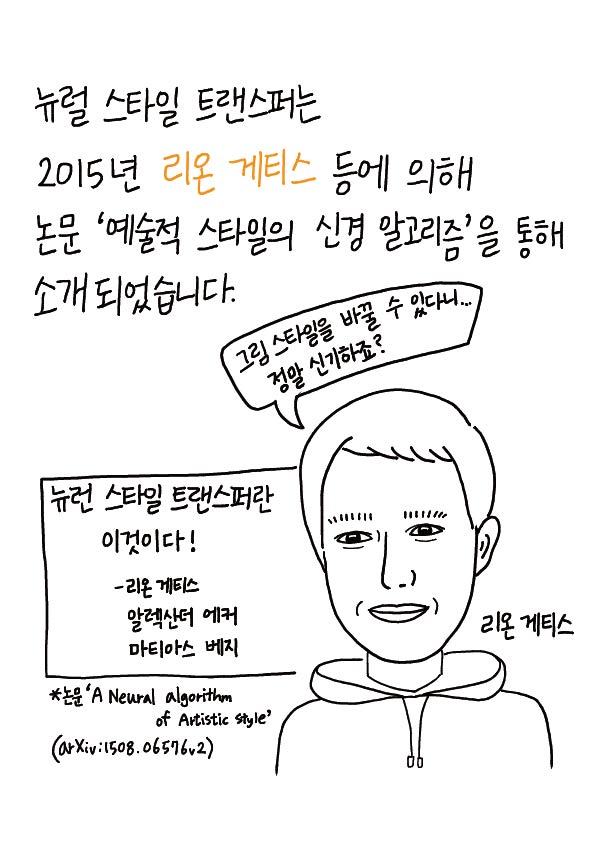 뉴럴 스타일 트랜스퍼는
2015년 리온 게티스 등에 의해
논문 ‘예술적 스타일의 신경 알고리즘’을 통해
소개 되었습니다.
그림 스타일을 바꿀 수 있다니...
정말 신기하죠?
뉴런 스타일 트랜스퍼란
이것이다!
-리온 게티스
알렉산더 에커
마티아스 베지
리온 게티스
*논문 ‘A Neural algorithm
of Artistic style’
(arXiv:1508.06576v2)